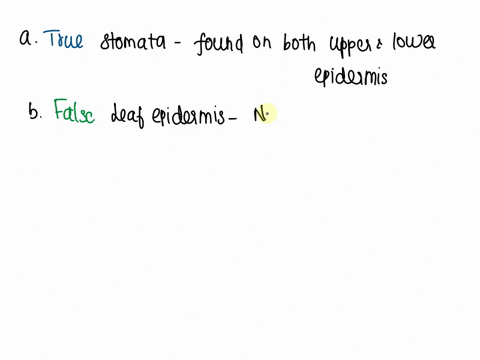 a. True stomata - found on both upper & lower
epidermis
b. False Leaf epidermis - N